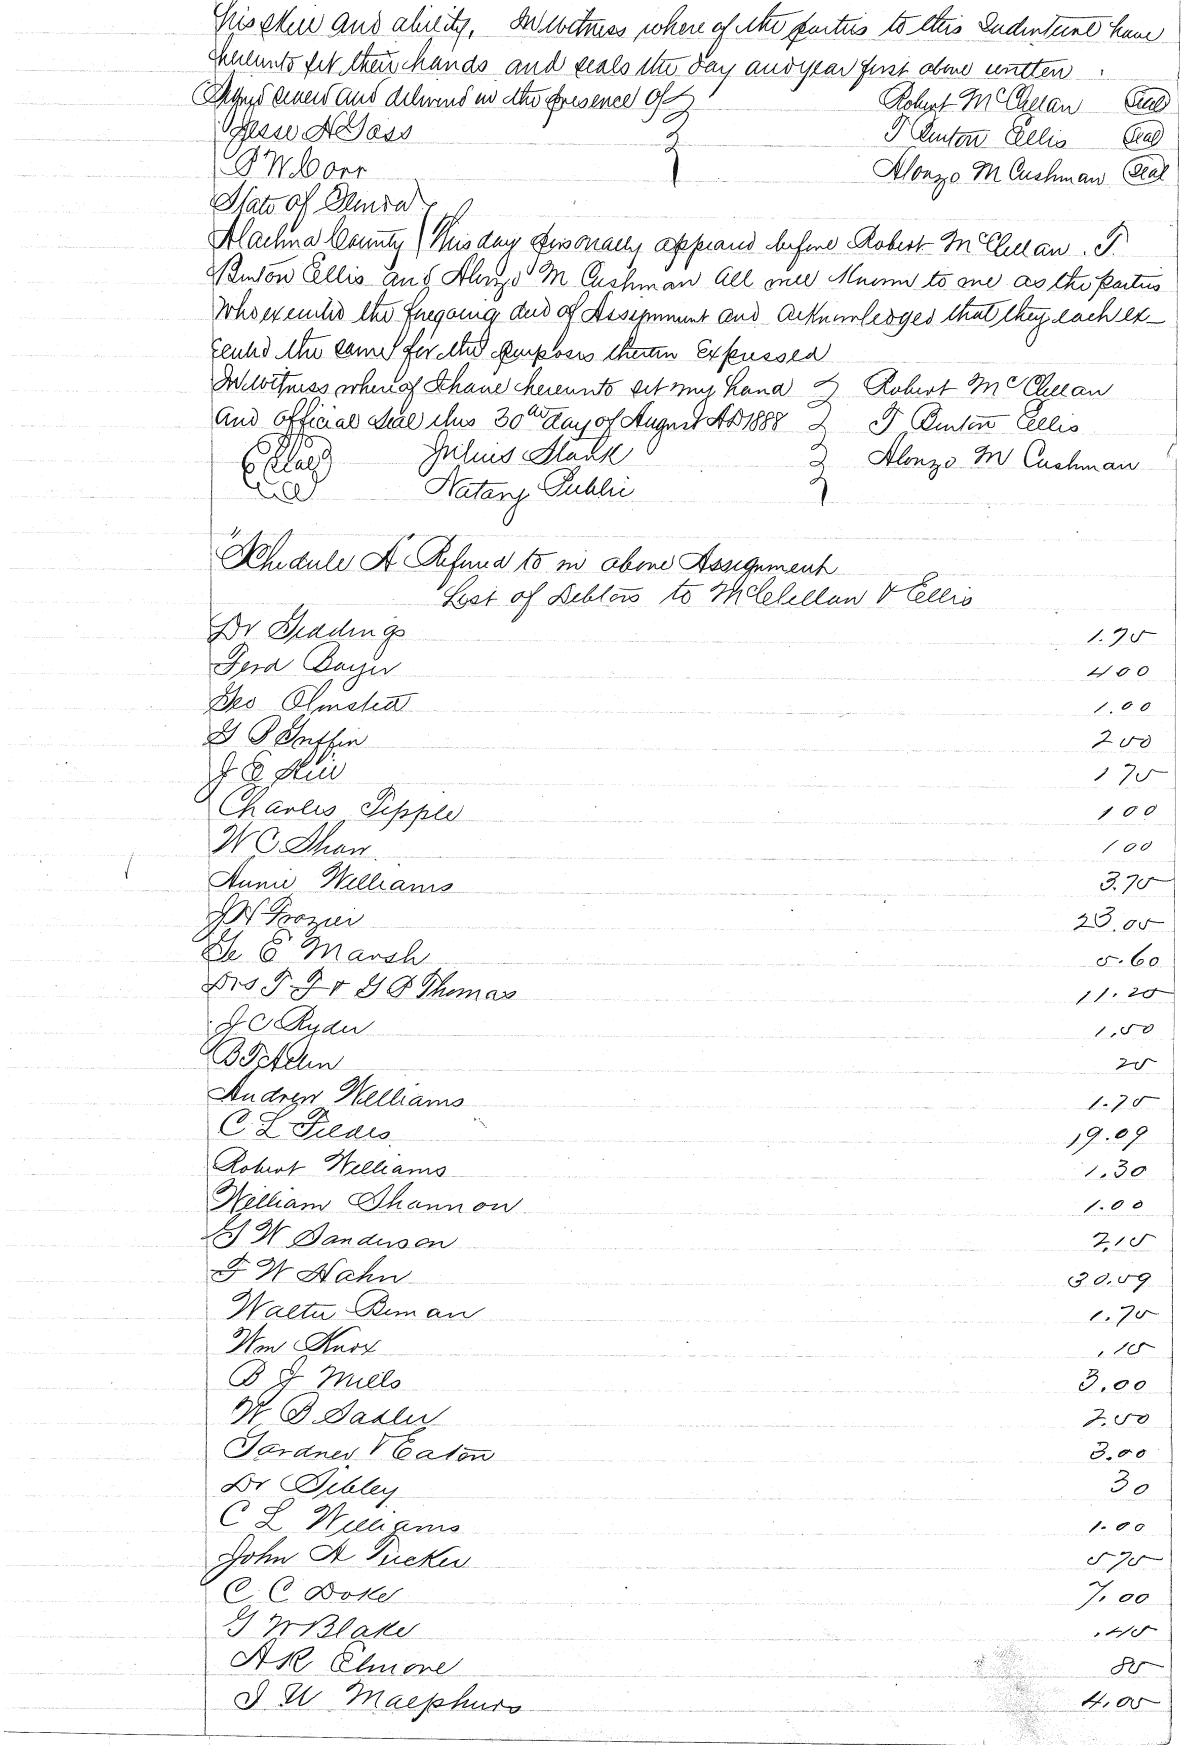 his skill and ability. In witness where of the parties to this Indenture have
hereunto set their hands and seals the day and year first above written.
Signed sealed and delivered in the presence of Robert McClellan Seal
Jesse H Goss T Benton Ellis Seal
P W Corr Alonzo M Cushman Seal
State of Florida
Alachua County This day personally appeared before Robert McClellan. T.
Benton Ellis and Alonzo M Cushman all well Known to me as the parties
who executed the foregoing deed of Assignment and acknowledged that they each ex-
ecuted the same for the purposes therein Expressed
In witness where of I have hereunto set my hand Robert McClellan
and official Seal this 30th day of August AD 1888 T Benton Ellis
Julius Slank Alonzo M Cushman
Notary Public
"Schedule A" Refered to in above Assignment
List of Debtors to McClellan & Ellis
Dr Giddings 1.75
Ferd Bayer 4 00
Geo Olmsted 1.00
G P Griffin 2 00
J E Hill 1 75
Charles Tipple 1 00
W C Shaw 1 00
Annie Williams 3.75
J W Frozier 23.05
Ge E Marsh 5.60
Drs T F & G P Thomas 11.25
J C Ryder 1.50
B F Allen 25
Andrew Williams 1.75
C L Fildes 19.09
Robert Williams 1.30
William Shannon 1.00
G W Sanderson 2.15
F W Hahn 30.59
Walter Beman 1.75
Wm Knox .15
B J Mills 3.00
W B Sadler 2.50
Gardner & Eaton 3.00
Dr Sibley 30
C L Williams 1.00
John A Tucker 5 75
C C Doke 7.00
G W Blake .45
A R Elmore 85
J W Maephurs 4.05